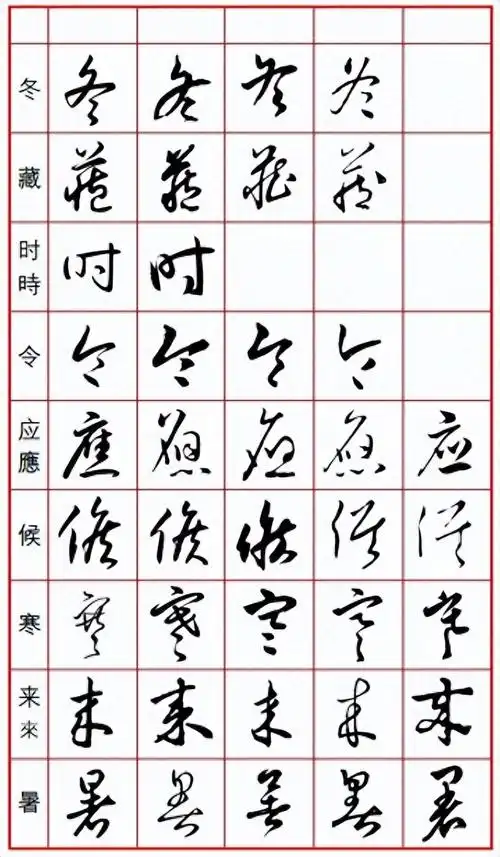 冬 冬 冬 冬 冬
藏 藏 藏 藏 藏
时時 时 时
令 令 令 令 令
应應 應 應 應 應 应
候 候 候 候 候 候
寒 寒 寒 寒 寒 寒
来來 来 来 来 来 来
暑 暑 暑 暑 暑 暑